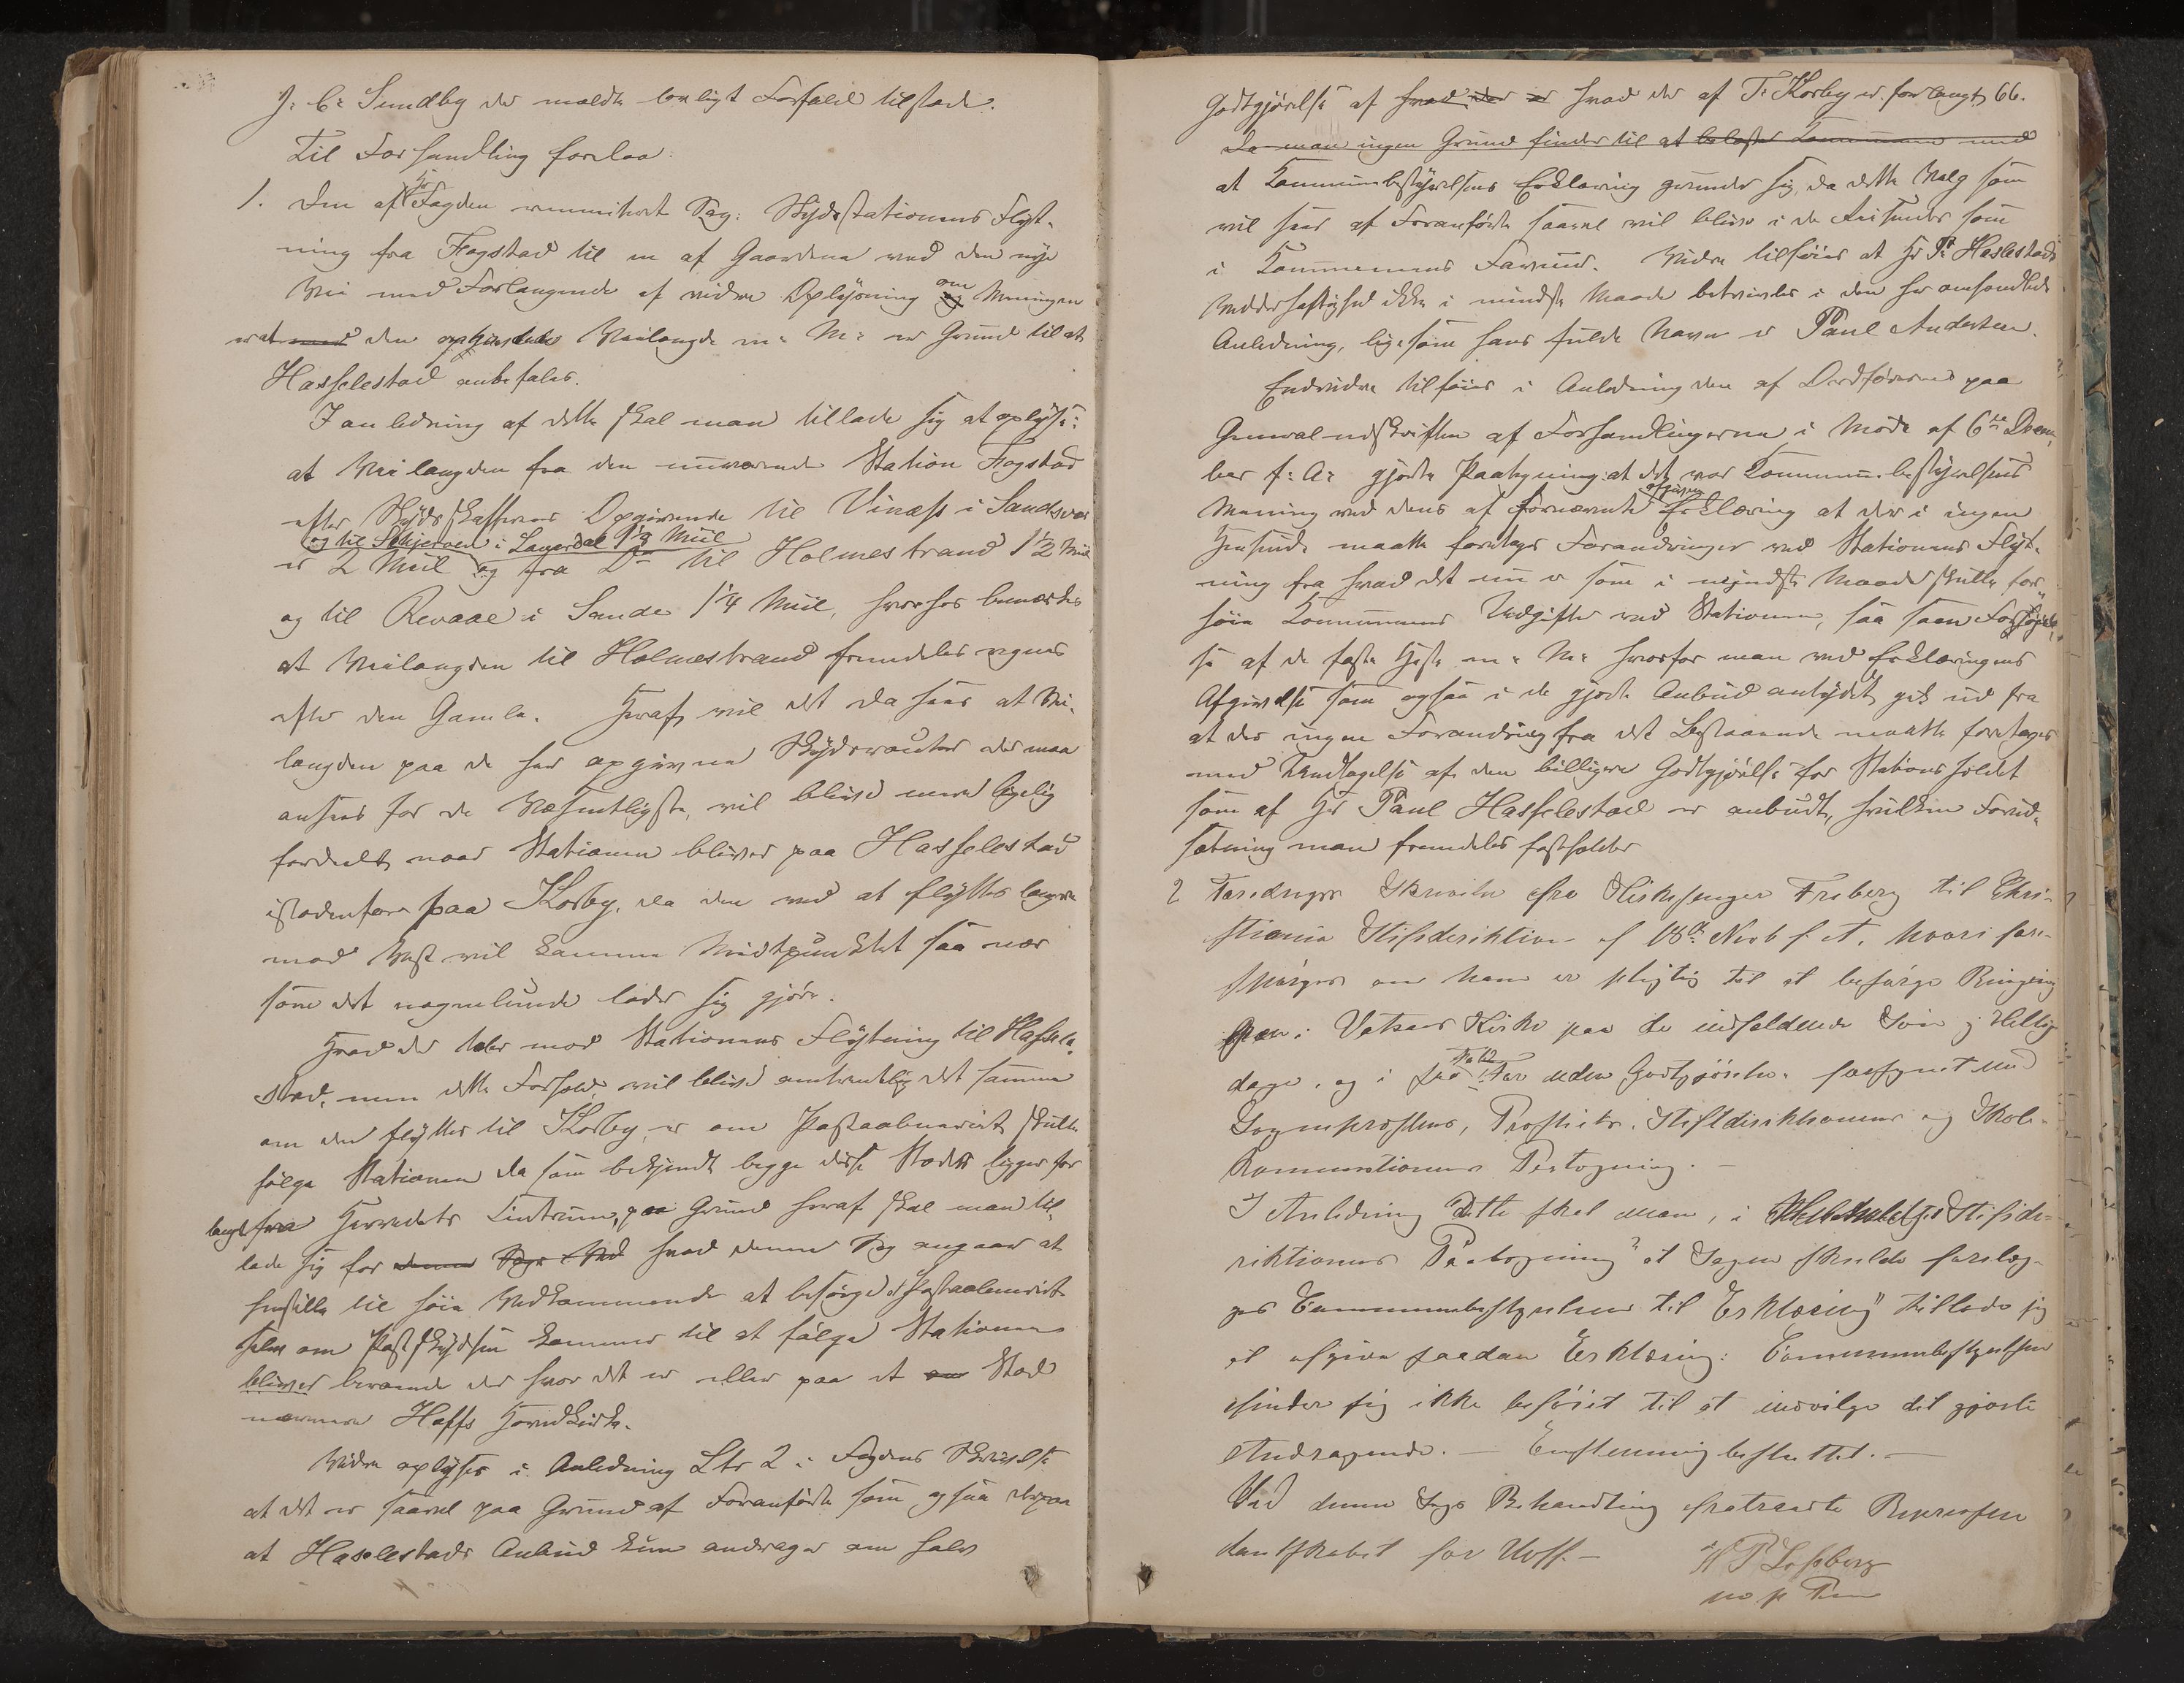 J. C. Sundby der meldte lovligt Forfald tilstede.
Til Forhandling forelaa:
1. Den af Hr Fogden remitteret Sag: Skydsstationens Flyt-
ning fra Fogstad til en af Gaardene ved den nye
Vei med Forlangende af videre Oplysning om Meningen
er at med den Veilængde m. M. er Grund til at
Hasselestad anbefales.
I anledning af dette skal man tillade sig at oplyse:
at Veilængden fra den nuværende Station Fogstad
efter Skydsskafferens Opgivende til Vinæss i Sandsvær
og til Schjerven i Lauerdal 1½ Miil
er 2 Miil og fra Do til Holmestrand 1½ Miil
og til Revaae i Sande 1¼ Miil, hvorhos bemærkes
at Veilængden til Holmestrand fremdeles regnes
efter den Gamle. Heraf vil det da sees at Vei-
længden paa de her opgivne Skydsrouter der maa
ansees for de Væsentligste, vil blive mere ligelig
fordeelt naar Stationen bliver paa Hasselestad
istedenfor paa Korby, da den ved at flyttes længere
mod Vest vil komme Midtpunktet saa nær
som det nogenlunde lader sig gjøre.
Hvad der taler mod Stationens Flytning til Hassele-
stad, men dette Forhold vil blive omtrentlig det samme
om den flyttes til Korby, er om Postaabneriet skulle
følge Stationen da som bekjendt begge disse Steder ligger for
langt fra Herredets Centrum, paa Grund heraf skal man til-
lade sig for denne Sags hvad denne Sag angaar at
henstille til høie Vedkommende at besørge at Postaabneriet
selv om Postskydsen kommer til at følge Stationen
bliver beroende der hvor det er eller paa et Sted
nærmere Hoffs Hovedkirke.
Videre oplyses i Anledning Ltr 2 i Fogdens Skrivelse
at det er saavel paa Grund af Foranførte som ogsaa derpaa
at Haselestads Anbud kun andrager om halv
Godtgjørelse af hvad der er hvad der af T. Korby er forlangt, 66.
Da man ingen Grund finder til at belaste Kommunen med
at Kommunebestyrelsens Erklæring grunder sig, da dette Valg som
vil sees af Foranførte saavel vil blive i de Reisendes som
i Kommunens Favør. Videre tilføies at Hr P. Haslestads
Vederheftighed ikke i mindste Maade betvivles i den her omhandlede
Anledning, ligesom hans fulde Navn er Paul Andersen.
Endvidere tilføies i Anledning den af Ordføreren paa
Gjenpartudskriften af Forhandlingerne i Møde af 6te Decem-
ber f. A. gjorte Paategning: at det var Kommunebestyrelsens
Mening ved dens af fornævnte afgivne Erklæring at der i ingen
Henseende maatte foretages Forandringer ved Stationens Flyt-
ning fra hvad det nu er som i mindste Maade skulle for-
høie Kommunens Udgifter ved Stationen, saa som Forhøiel-
se af de faste Heste m. M. hvorfor man ved Erklæringens
Afgivelse som ogsaa i de gjorte Anbud antydet, gik ud fra
at der ingen Forandring fra det Bestaaende maatte foretages
med Undtagelse af den billigere Godtgjørelse for Stationsholdet
som af Hr Paul Hasselestad er anbudt, hvilken Forud-
sætning man fremdeles fastholder
2 Foredroges Skrivelse fra Kirkesanger Freberg til Chri-
stiania Stiftsdirektion af 18de Novb f. A. hvori fore-
spørges om han er pligtig til at besørge Ringning
i Vatsaas Kirke paa de indfaldende Søn og Hellig-
dage, og i fald uden Godtgjørelse. forsynet med
Sogneprestens, Provstiets, Stiftdirektionens og Skole-
kommissionens Paategning. –
I Anledning Dette skal man, i Stiftsdi-
riktionens Paategning "at Sagen skulde forelæg-
ges Communebestyrelsen til Erklæring" tillade sig
at afgive saadan Erklæring: Communebestyrelsen
finder sig ikke beføiet til at indvilge det gjorte
Andragende. – Enstemmig besluttet. –
Ved denne Sags Behandling fratraadte Repræsen
dantskabet for Hoff. –